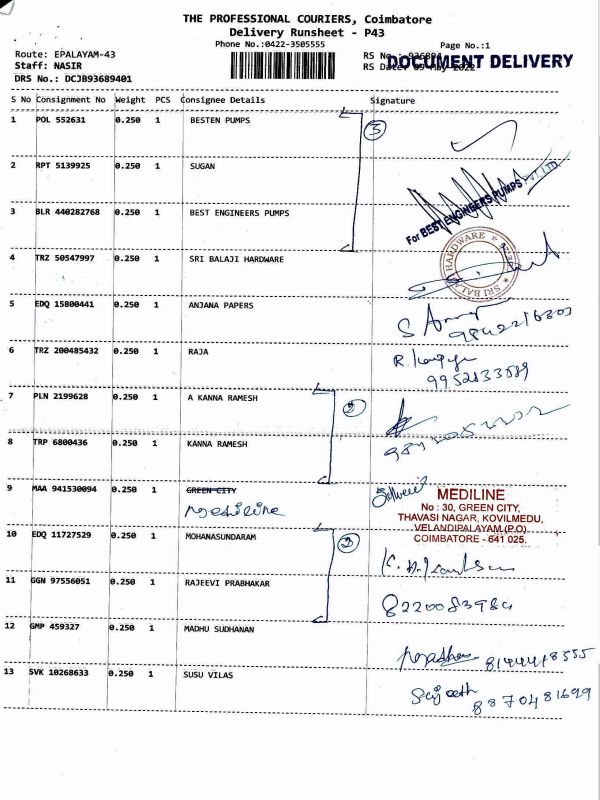 THE PROFESSIONAL COURIERS, Coimbatore
Delivery Runsheet - P43
Phone No.:0422-3505555
Page No.:1
Route: EPALAYAM-43
RS No.:
DOCUMENT DELIVERY
Staff: NASIR
RS Date: 2022
DRS No.: DCJB93689401
S No Consignment No Weight PCS Consignee Details Signature
1 POL 552631 0.250 1 BESTEN PUMPS
3
2 RPT 5139925 0.250 1 SUGAN
For BEST ENGINEERS PUMPS PVT LTD
3 BLR 440282768 0.250 1 BEST ENGINEERS PUMPS
4 TRZ 50547997 0.250 1 SRI BALAJI HARDWARE
HARDWARE
5 EDQ 15800441 0.250 1 ANJANA PAPERS
6 TRZ 200485432 0.250 1 RAJA
7 PLN 2199628 0.250 1 A KANNA RAMESH
2
8 TRP 6800436 0.250 1 KANNA RAMESH
9 MAA 941530094 0.250 1 GREEN CITY
MEDILINE
No : 30, GREEN CITY,
THAVASI NAGAR, KOVILMEDU,
VELANDIPALAYAM (P.O)
COIMBATORE - 641 025.
10 EDQ 11727529 0.250 1 MOHANASUNDARAM
2
11 GGN 97556051 0.250 1 RAJEEVI PRABHAKAR
8220083984
12 GMP 459327 0.250 1 MADHU SUDHANAN
8144418555
13 SVK 10268633 0.250 1 SUSU VILAS
8870481699